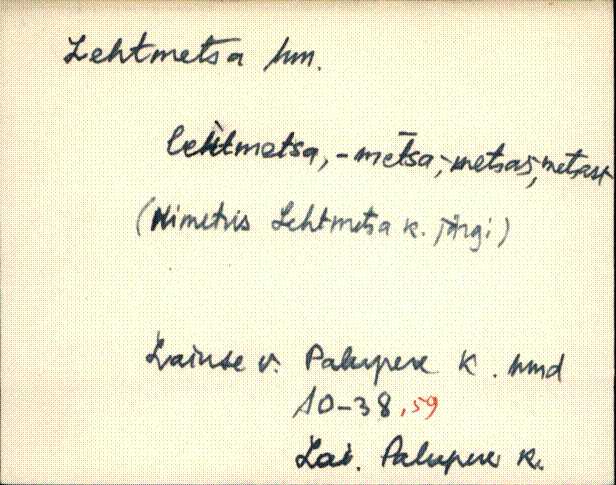 Lehtmetsa hm.
lehtmetsa, -mētsa, -metsas, metsast
(Nimetis Lehtmetsa k. järgi)
Laiuse v. Palupere k. hmd
AO-38, 59
Lai. Palupere k.